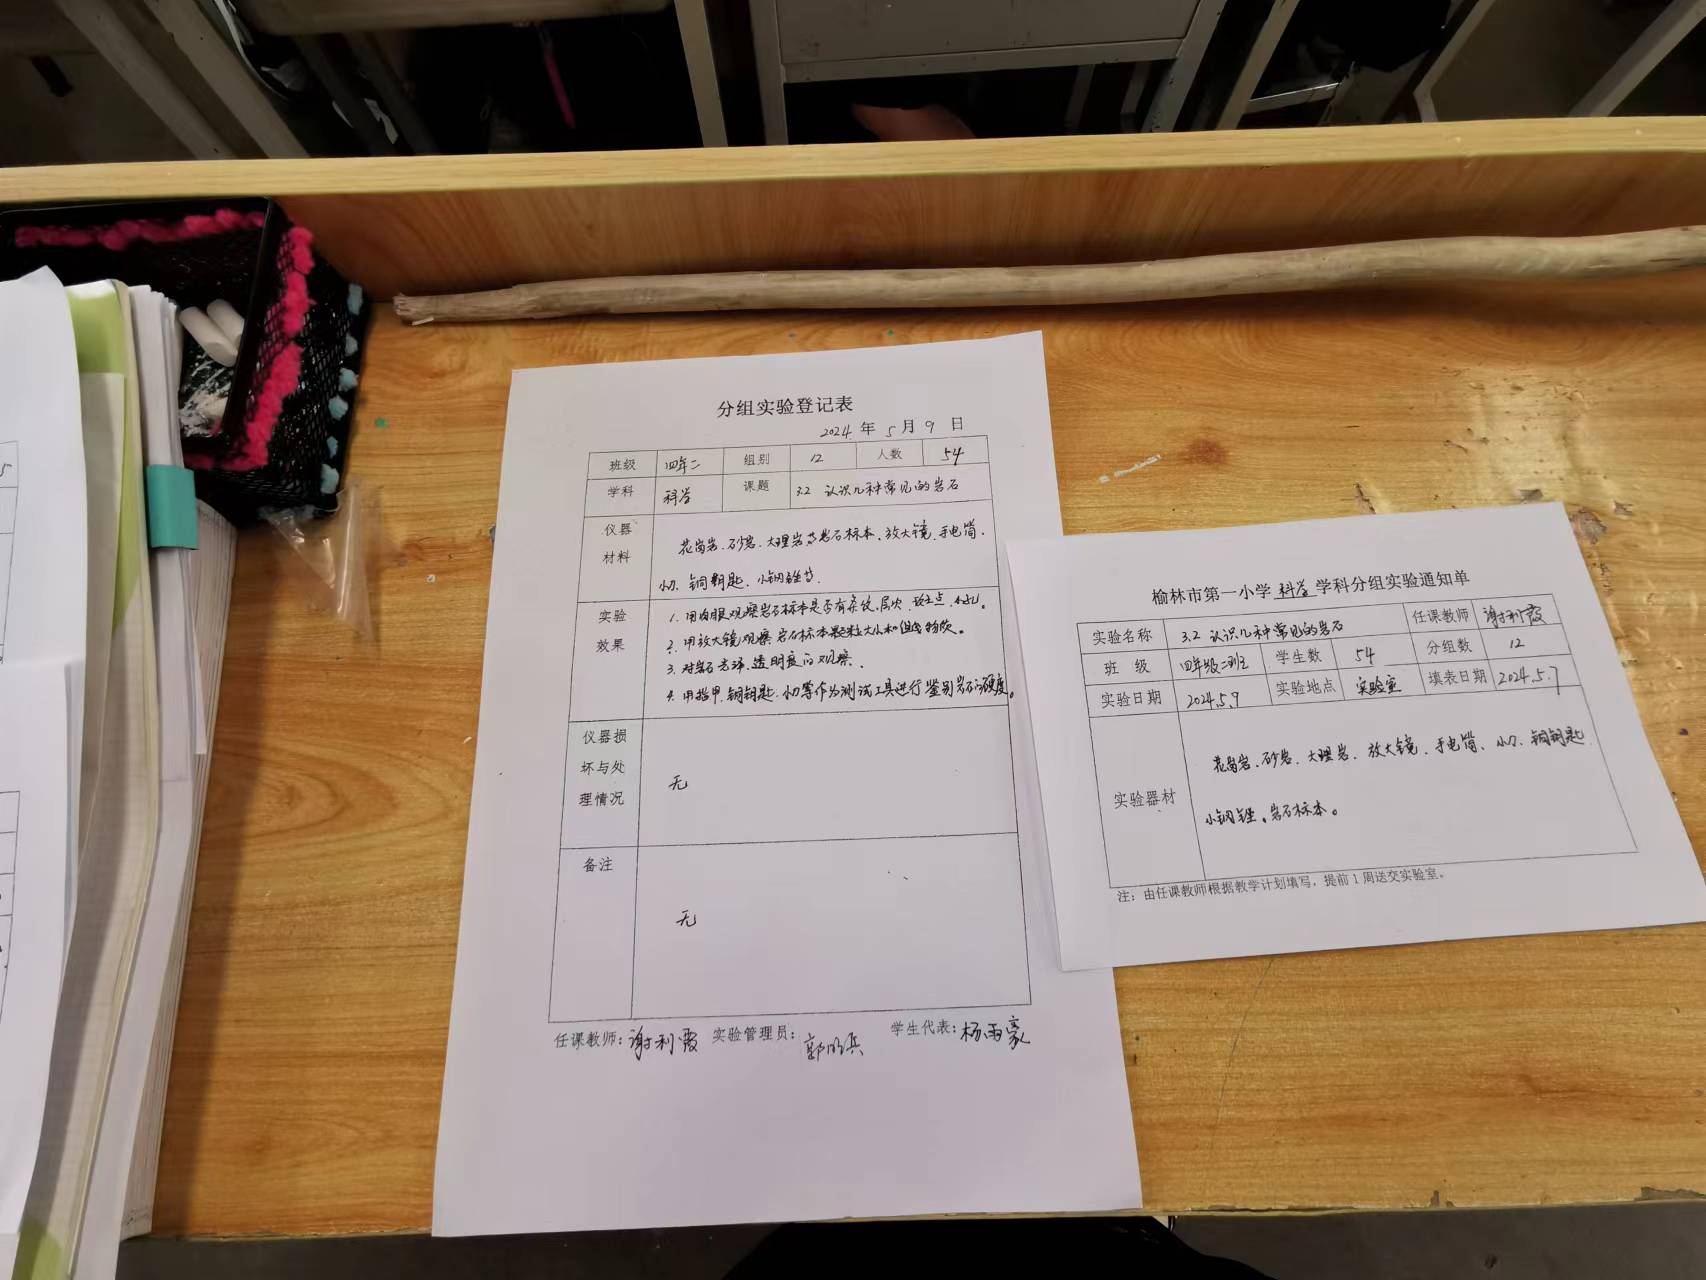 分组实验登记表
2024 年 5 月 9 日
班级 四年二 组别 12 人数 54
学科 科学 课题 3.2 认识几种常见的岩石
仪器材料 花岗岩、砂岩、大理岩等岩石标本、放大镜、手电筒、
小刀、铜钥匙、小钢锉等、
实验效果 1. 用肉眼观察岩石标本是否有条纹、层次、斑点、小孔。
2. 用放大镜观察岩石标本颗粒大小和组成物质。
3. 对岩石光泽、透明度的观察、
4. 用指甲、铜钥匙、小刀等作为测试工具进行鉴别岩石的硬度。
仪器损坏与处理情况 无
备注 无
任课教师：谢利霞 实验管理员： 学生代表：杨雨豪
榆林市第一小学 科学 学科分组实验通知单
实验名称 3.2 认识几种常见的岩石 任课教师 谢利霞
班 级 四年级二班 学生数 54 分组数 12
实验日期 2024.5.9 实验地点 实验室 填表日期 2024.5.7
实验器材 花岗岩、砂岩、大理岩、放大镜、手电筒、小刀、铜钥匙
小钢锉。岩石标本。
注：由任课教师根据教学计划填写，提前1周送交实验室。